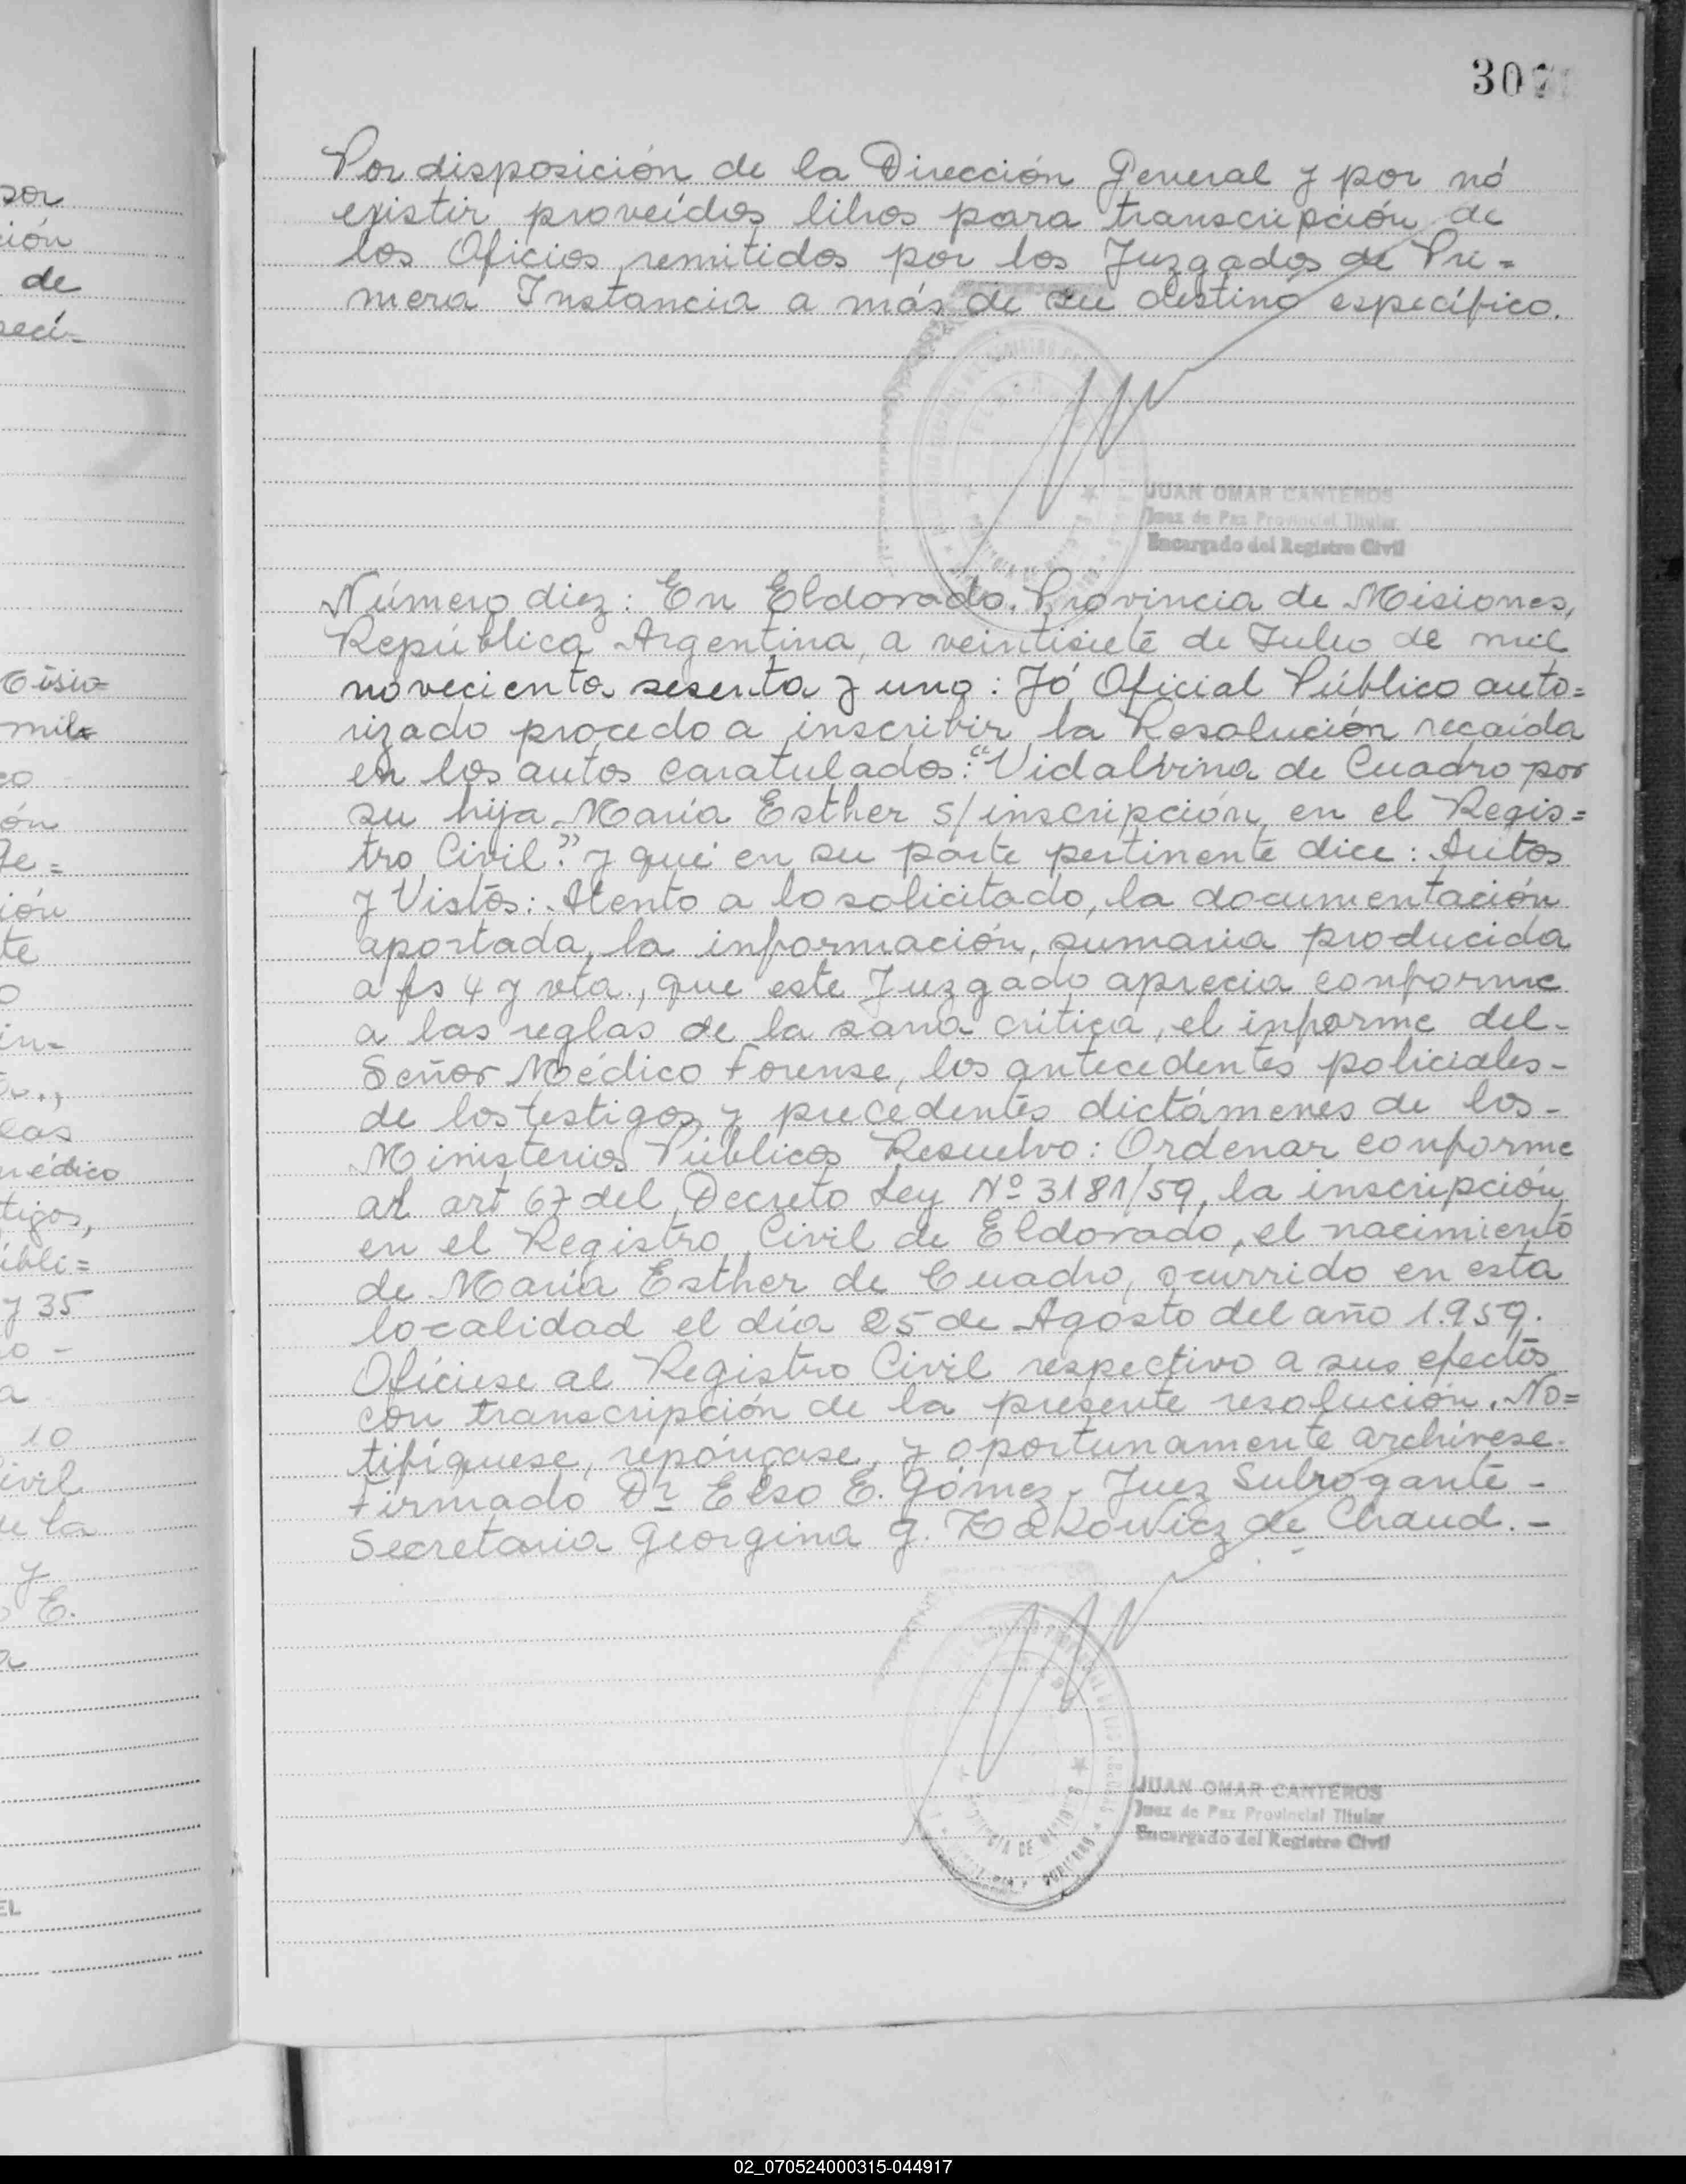 307
Por disposición de la Dirección General y por nó
existir proveídos libros para transcripción de
los Oficios remitidos por los Juzgados de Pri=
mera Instancia a más de su destino específico.
JUAN OMAR CANTEROS
Juez de Paz Provincial Titular
Encargado del Registro Civil
Número diez: En Eldorado, Provincia de Misiones,
República Argentina, a veintisiete de Julio de mil
novecientos sesenta y uno: Yó Oficial Público auto=
rizado procedo a inscribir la Resolución recaída
en los autos caratulados: "Vidalvina de Cuadro por
su hija María Esther s/inscripción en el Regis=
tro Civil." y que en su parte pertinente dice: Autos
y Vistos: Atento a lo solicitado, la documentación
aportada, la información sumaria producida
a fs 4 y vta, que este Juzgado aprecia conforme
a las reglas de la sana crítica, el informe del-
Señor Médico Forense, los antecedentes policiales-
de los testigos y precedentes dictámenes de los-
Ministerios Públicos Resuelvo: Ordenar conforme
al art 67 del Decreto Ley Nº 3181/59, la inscripción
en el Registro Civil de Eldorado, el nacimiento
de María Esther de Cuadro, ocurrido en esta
localidad el día 25 de Agosto del año 1.959.
Ofíciese al Registro Civil respectivo a sus efectos
con transcripción de la presente resolución. No=
tifíquese, repóngase, y oportunamente archívese.
Firmado Dr Elso E. Gómez, Juez Subrogante -
Secretaria Georgina G. Zakowicz de Chaud. -
JUAN OMAR CANTEROS
Juez de Paz Provincial Titular
Encargado del Registro Civil
02_070524000315-044917